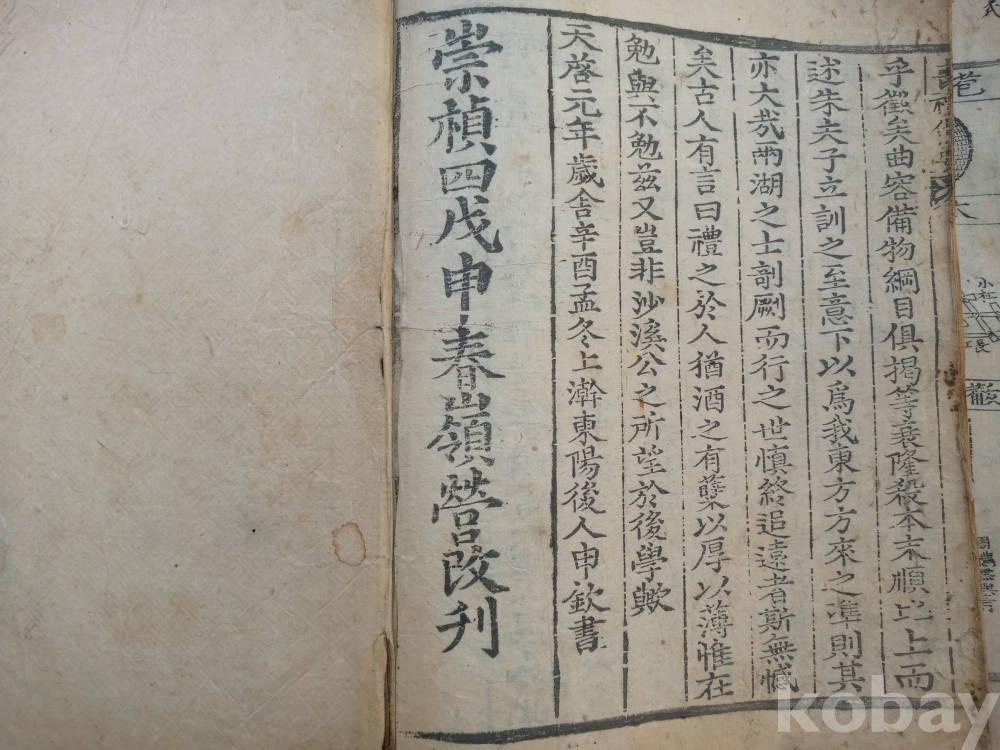 乎徵矣曲容備物綱目俱揭等衰隆殺本末順比上而
述朱夫子立訓之至意下以爲我東方方來之準則其
亦大哉兩湖之士剞劂而行之世愼終追遠者斯無憾
矣古人有言曰禮之於人猶酒之有糱以厚以薄惟在
勉與不勉玆又豈非沙溪公之所望於後學歟
天啓元年歲舍辛酉孟冬上澣東陽後人申欽書
崇禎四戊申春嶺營改刊
小
長
kobay